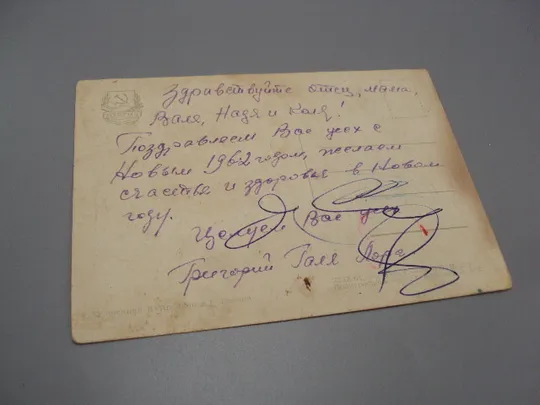 Здравствуйте отец, мама,
Валя, Надя и Коля!
Поздравляем Вас всех с
Новым 1962 годом, желаем
счастья и здоровья в Новом
году.
Целуем Вас всех
Григорий Галя